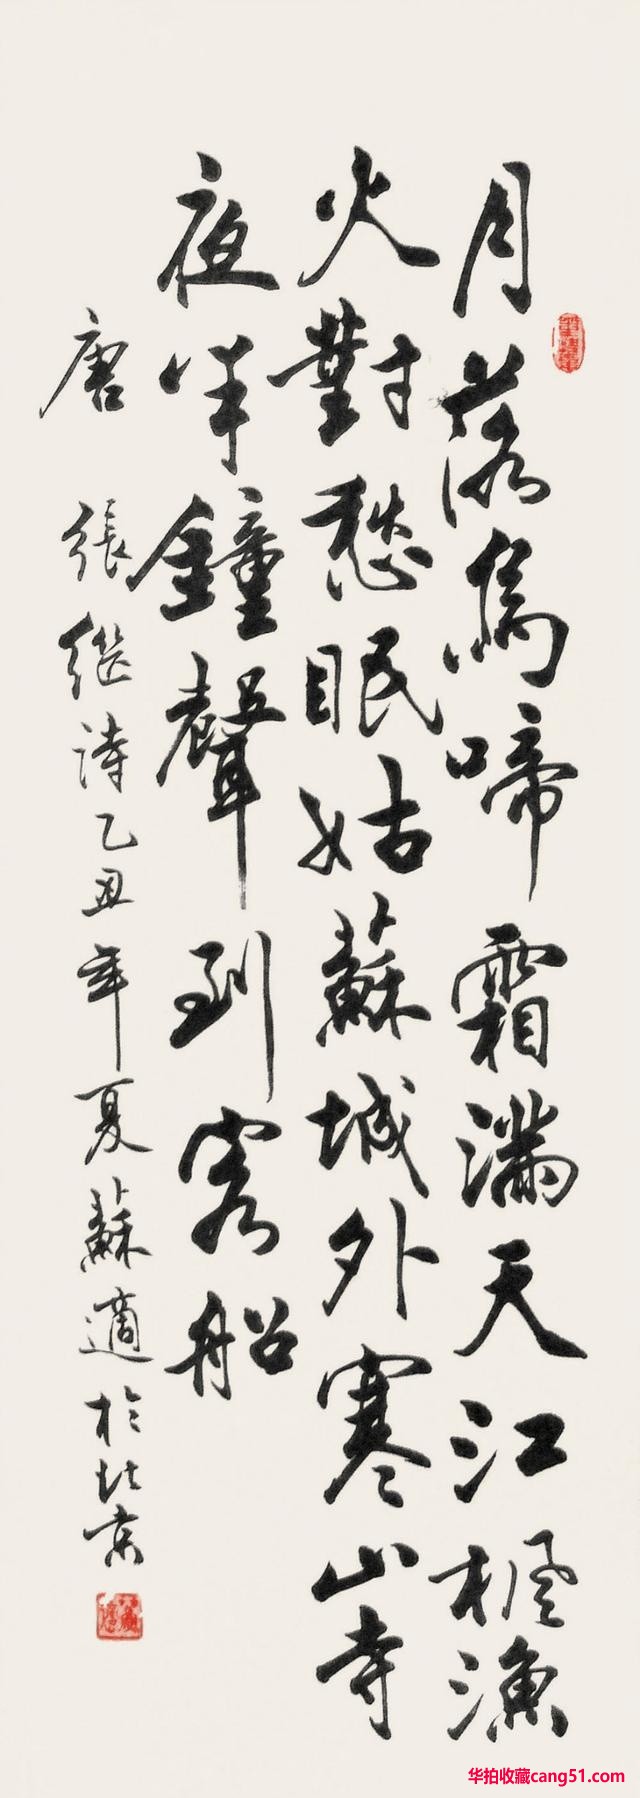 月落烏啼霜滿天江楓漁
火對愁眠姑蘇城外寒山寺
夜半鐘聲到客船
唐 張繼詩乙丑年夏蘇適於北京
華拍收藏cang51.com